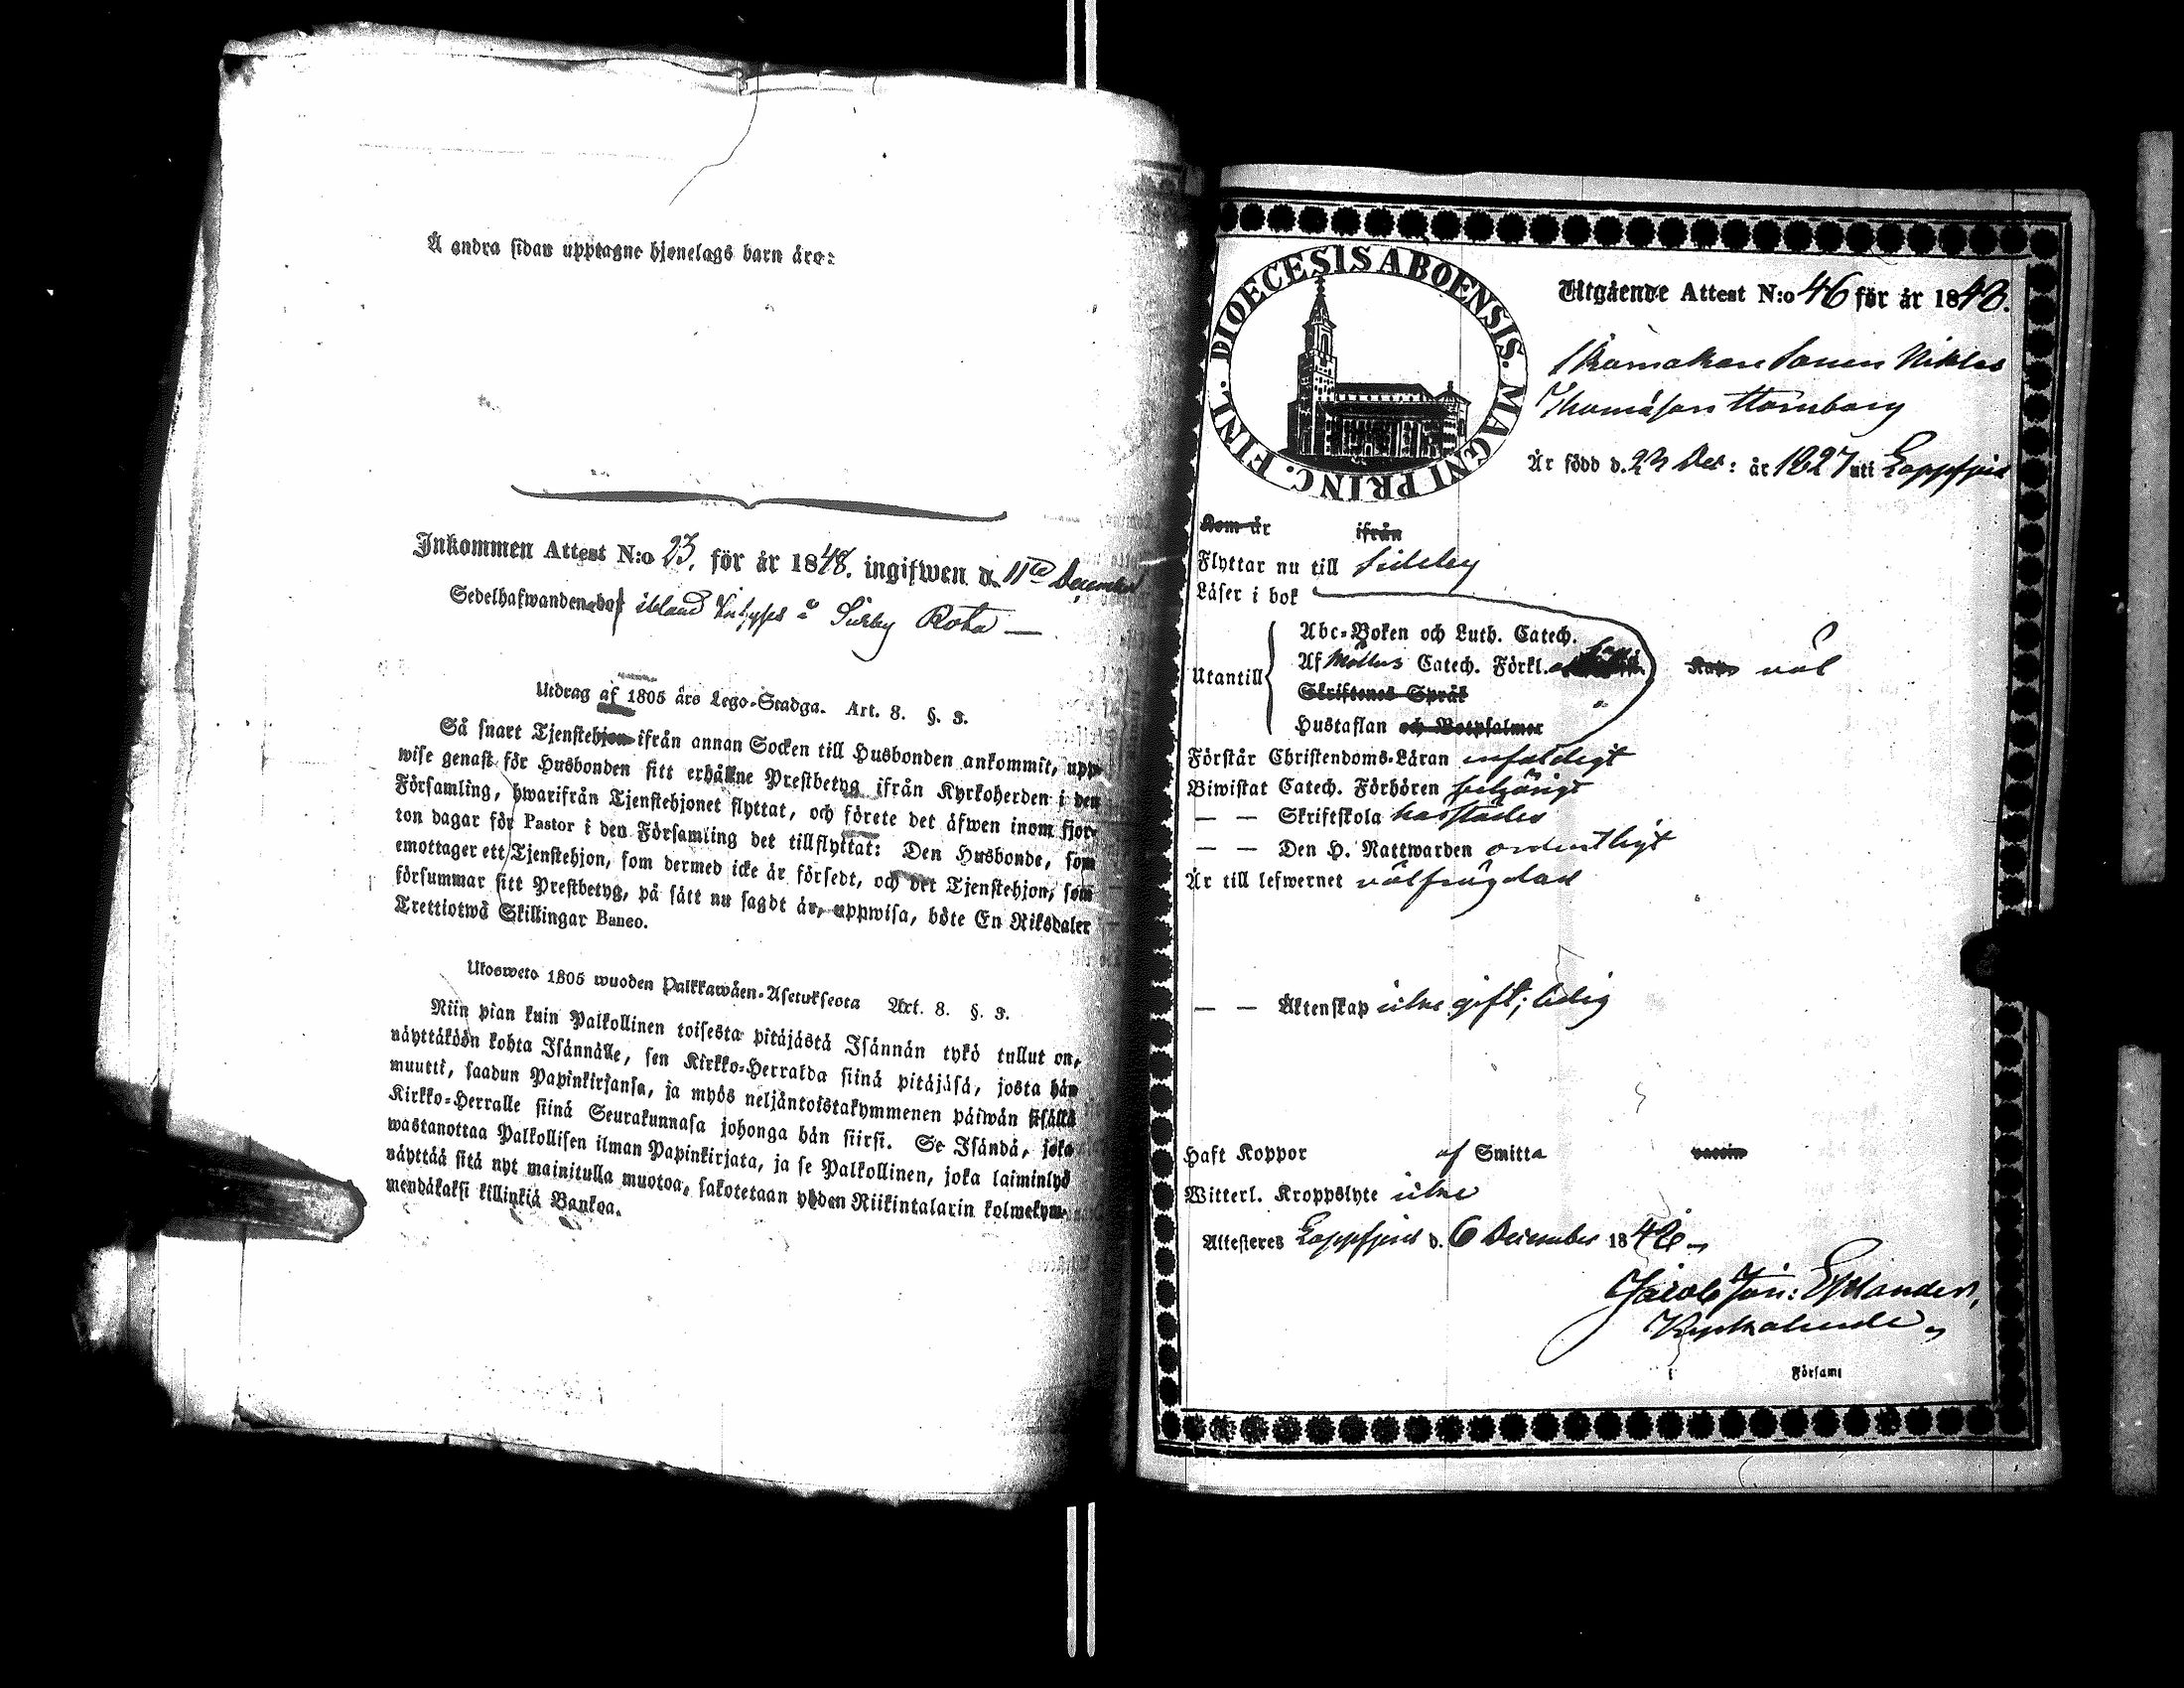 Å andra sidan upptagne hjonelags barn äro:
Inkommen Attest N:o 23. för år 1848. ingifwen d. 11te December
Sedelhafwanden bor ibland Inhyses å Sideby Rota —
Utdrag af 1805 års Lego-Stadga. Art. 8. §. 3.
Så snart Tjenstehjon ifrån annan Socken till Husbonden ankommit, upp-
wise genast för Husbonden sitt erhållne Prestbetyg ifrån Kyrkoherden i den
Församling, hwarifrån Tjenstehjonet flyttat, och förete det äfwen inom fjor-
ton dagar för Pastor i den Församling det tillflyttat: Den Husbonde, som
emottager ett Tjenstehjon, som dermed icke är försedt, och det Tjenstehjon, som
försummar sitt Prestbetyg, på sätt nu sagdt är, uppwisa, böte En Riksdaler
Trettiotwå Skillingar Banco.
Ulosweto 1805 wuoden Palkkawäen-Asetuksesta Art. 8. §. 3.
Niin pian kuin Palkollinen toisesta pitäjästä Isännän tykö tullut on,
näyttäköön kohta Isännälle, sen Kirkko-Herralda siinä pitäjäsä, josta hän
muutti, saadun Papinkirjansa, ja myös neljäntoistakymmenen päiwän sisällä
Kirkko-Herralle siinä Seurakunnasa johonga hän siirsi. Se Isändä, joka
wastanottaa Palkollisen ilman Papinkirjata, ja se Palkollinen, joka laiminlyö
näyttää sitä nyt mainitulla muotoa, sakotetaan yhden Riikintalarin kolmekym-
mendäkaksi killinkiä Bankoa.
DIOECESIS ABOENSIS. MAGNI PRINC. FINL.
Utgående Attest N:o 46 för år 1848.
Skomakare Sonen Niklas
Thomasson Hornborg
Är född d. 23 Dec: år 1827 uti Lappfjerd
Kom år ifrån
Flyttar nu till Sideby
Läser i bok
Abc-Boken och Luth. Catech.
Utantill Af Möllers Catech. Förkl. väl
Skriftenes Språk
Hustaflan och Botpsalmer
Förstår Christendoms-Läran enfaldigt
Biwistat Catech. Förhören behörigt
— — Skriftskola härstädes
— — Den H. Nattwarden ordentligt
Är till lefwernet välfrägdad
— — Äktenskap icke gift; ledig
Haft Koppor af Smitta vaccin
Witterl. Kroppslyte icke
Attesteres Lappfjerd d. 6 December 1848
Jacob Joh: Estlander,
Kyrkoherde
i Församl